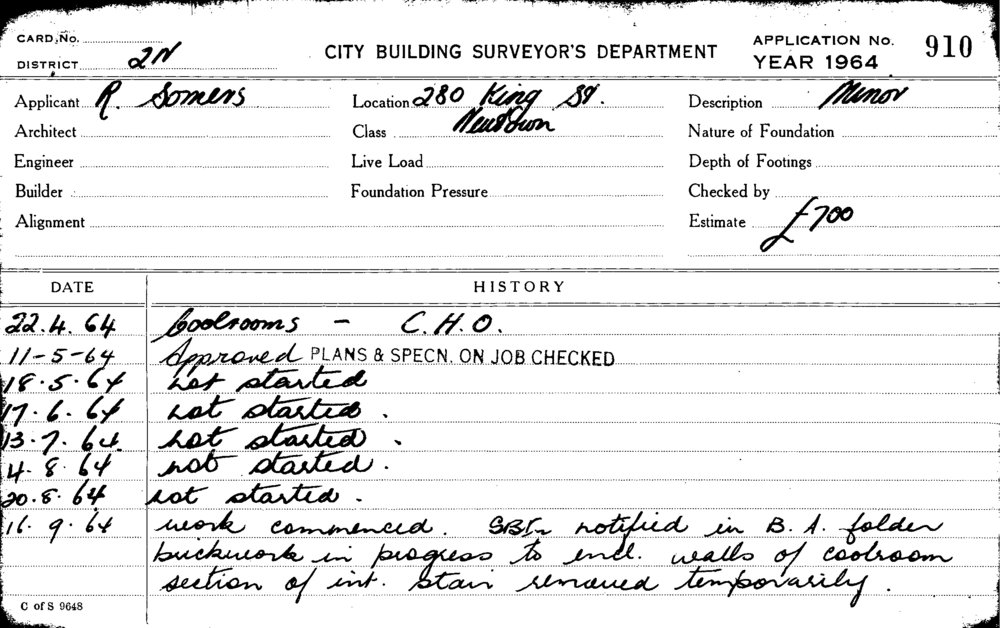 CARD No.
DISTRICT 2N
CITY BUILDING SURVEYOR'S DEPARTMENT
APPLICATION No. 910
YEAR 1964
Applicant R. Somers Location 280 King St. Description Minor
Architect Class Newtown Nature of Foundation
Engineer Live Load Depth of Footings
Builder Foundation Pressure Checked by
Alignment Estimate £700
DATE HISTORY
22.4.64 Coolrooms - C.H.O.
11-5-64 Approved PLANS & SPECN. ON JOB CHECKED
18.5.64 not started
17.6.64 not started.
13.7.64. not started.
4.8.64 not started.
20.8.64 not started.
16.9.64 work commenced. notified in B.A. folder
brickwork in progress to encl. walls of coolroom
section of int. stair removed temporarily.
C of S 9648